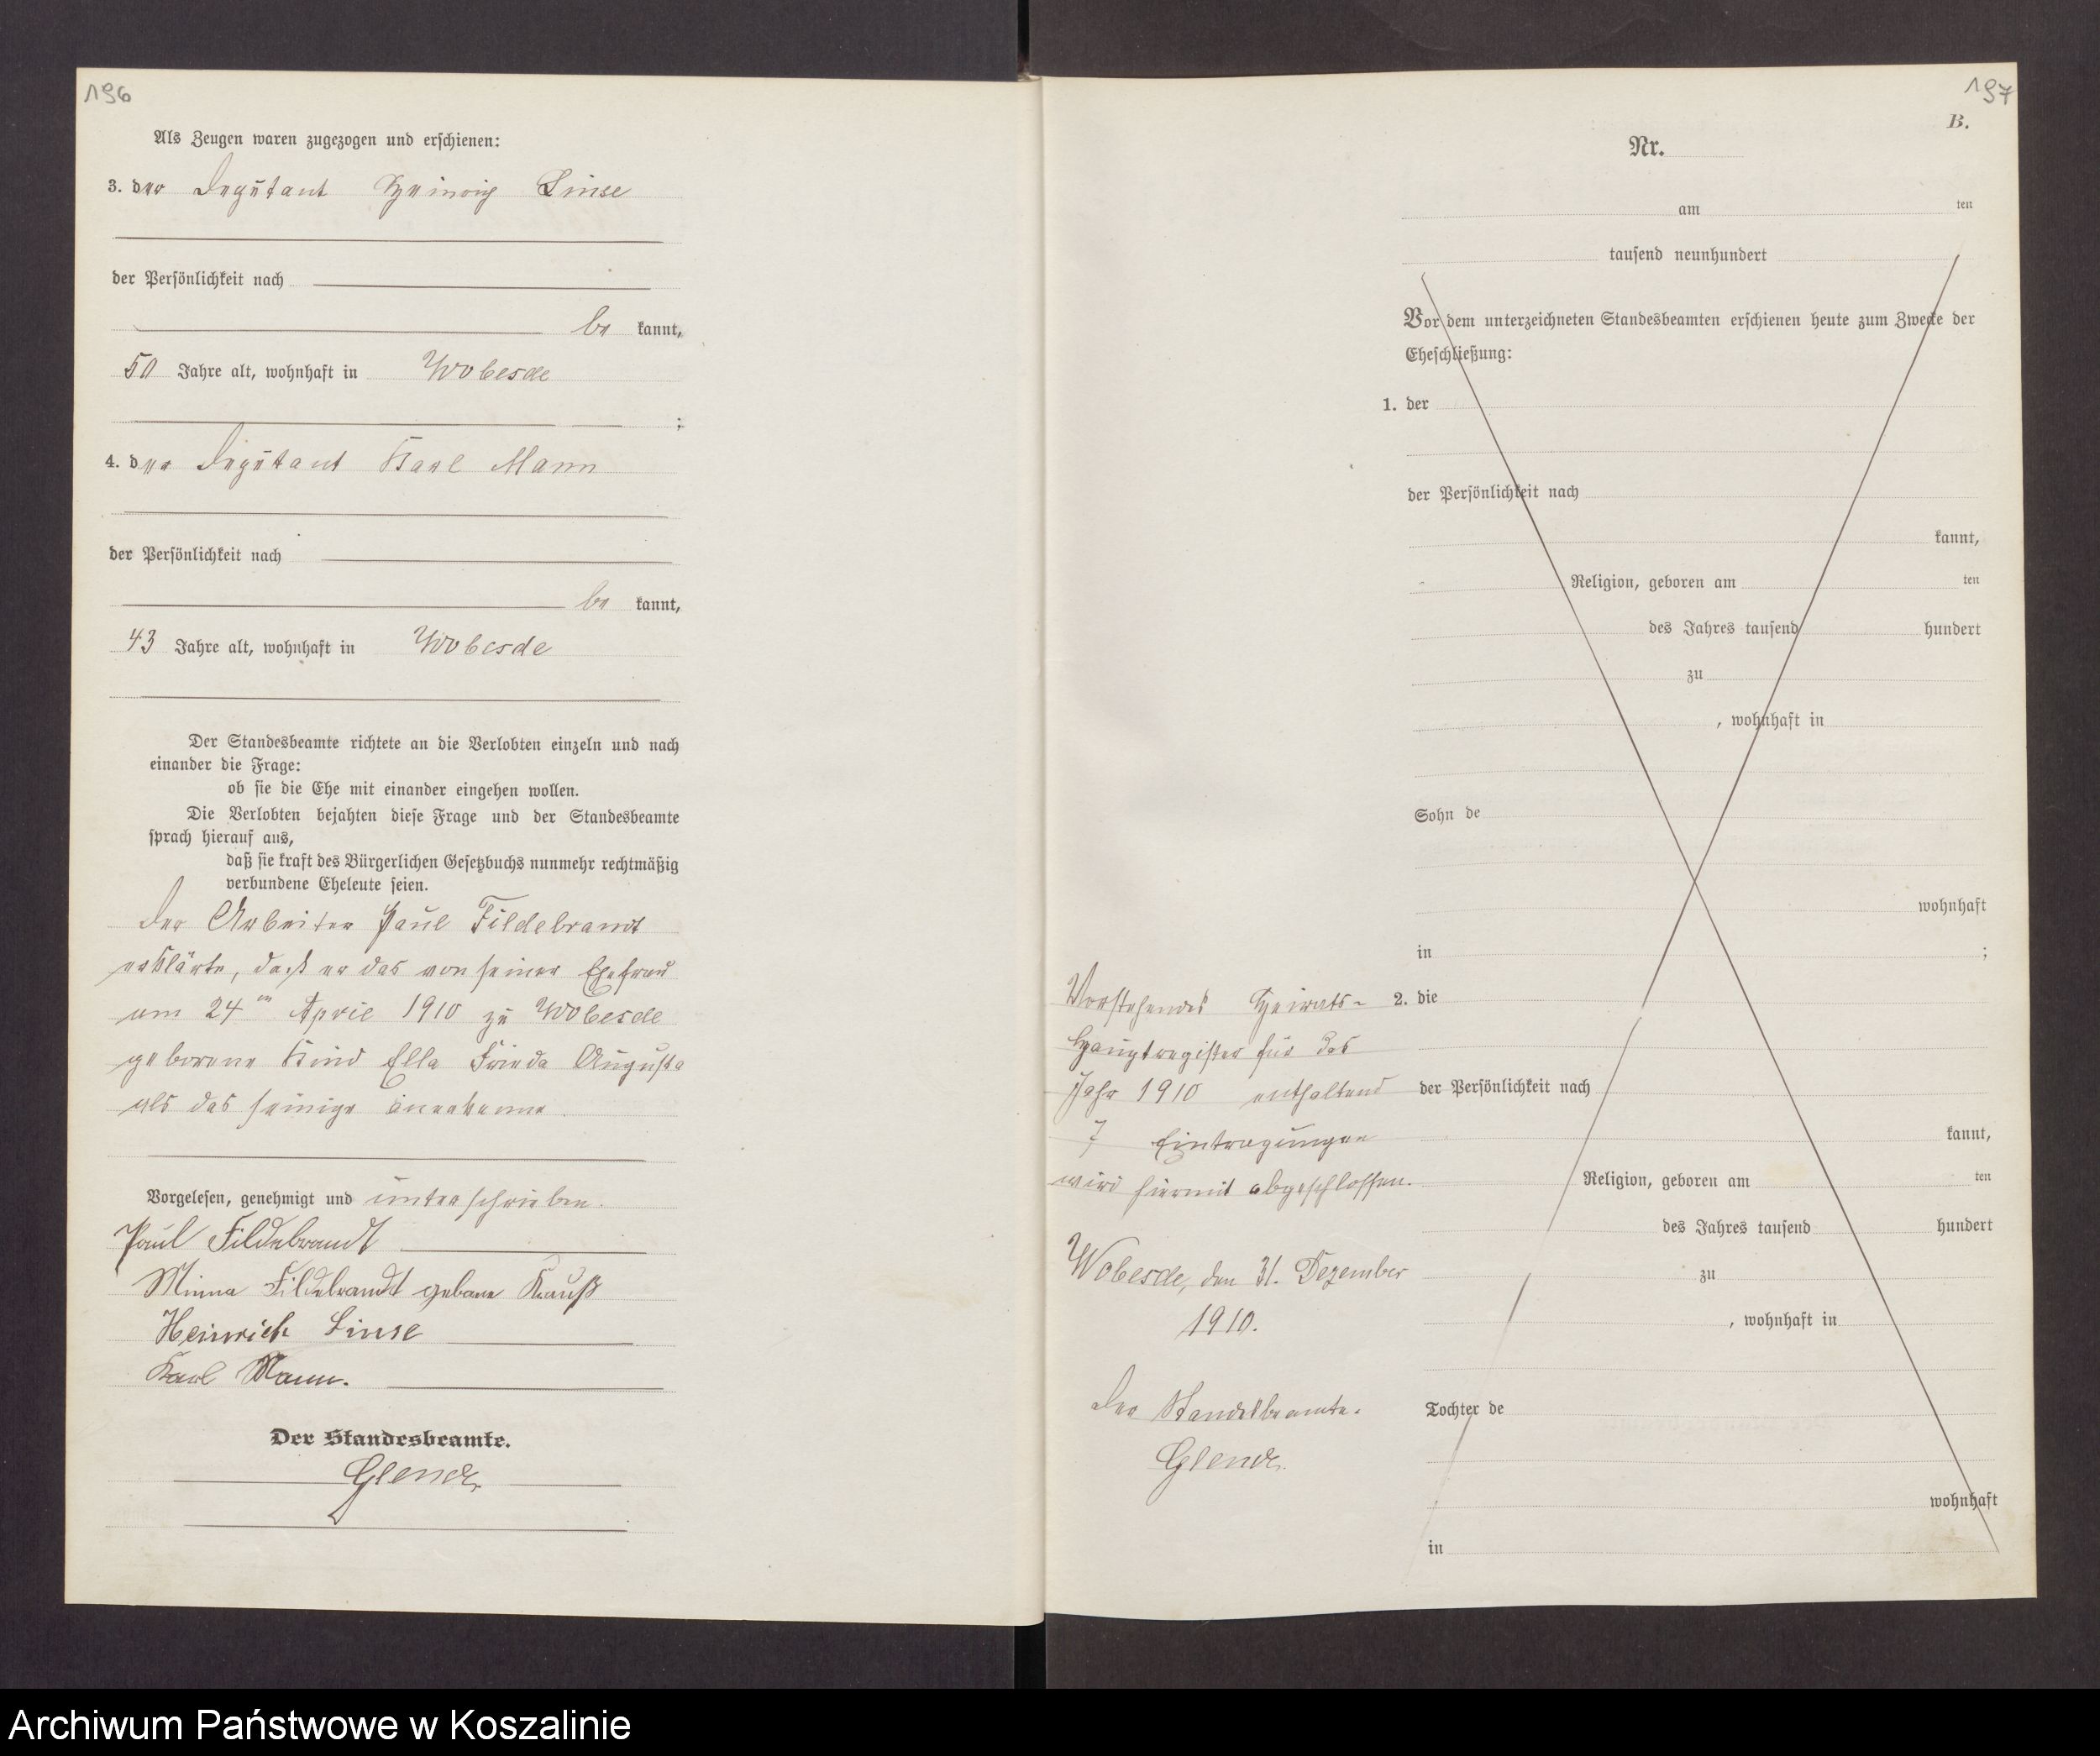 196
Als Zeugen waren zugezogen und erschienen:
3. der Deputant Heinrich Linse
der Persönlichkeit nach
be kannt,
50 Jahre alt, wohnhaft in Wobesde
;
4. der Deputant Karl Mann
der Persönlichkeit nach
be kannt,
43 Jahre alt, wohnhaft in Wobesde
Der Standesbeamte richtete an die Verlobten einzeln und nach
einander die Frage:
ob sie die Ehe mit einander eingehen wollen.
Die Verlobten bejahten diese Frage und der Standesbeamte
sprach hierauf aus,
daß sie kraft des Bürgerlichen Gesetzbuchs nunmehr rechtmäßig
verbundene Eheleute seien.
Der Arbeiter Paul Fildebrandt
erklärte, daß er das von seiner Ehefrau
am 24ten April 1910 zu Wobesde
geborene Kind Ella Frieda Augusta
als das seinige anerkenne.
Vorgelesen, genehmigt und unterschrieben.
Paul Fildebrandt
Minna Fildebrandt geborene Krauß
Heinrich Linse
Karl Mann.
Der Standesbeamte.
Glende
197
B.
Nr.
am ten
tausend neunhundert
Vor dem unterzeichneten Standesbeamten erschienen heute zum Zwecke der
Eheschließung:
1. der
der Persönlichkeit nach
kannt,
Religion, geboren am ten
des Jahres tausend hundert
zu
, wohnhaft in
Sohn de
wohnhaft
in ;
2. die
der Persönlichkeit nach
kannt,
Religion, geboren am ten
des Jahres tausend hundert
zu
, wohnhaft in
Tochter de
wohnhaft
in
Vorstehendes Heirats-
Hauptregister für das
Jahr 1910 enthaltend
7 Eintragungen
wird hiermit abgeschlossen.
Wobesde, den 31. Dezember
1910.
Der Standesbeamte.
Glende
Archiwum Państwowe w Koszalinie